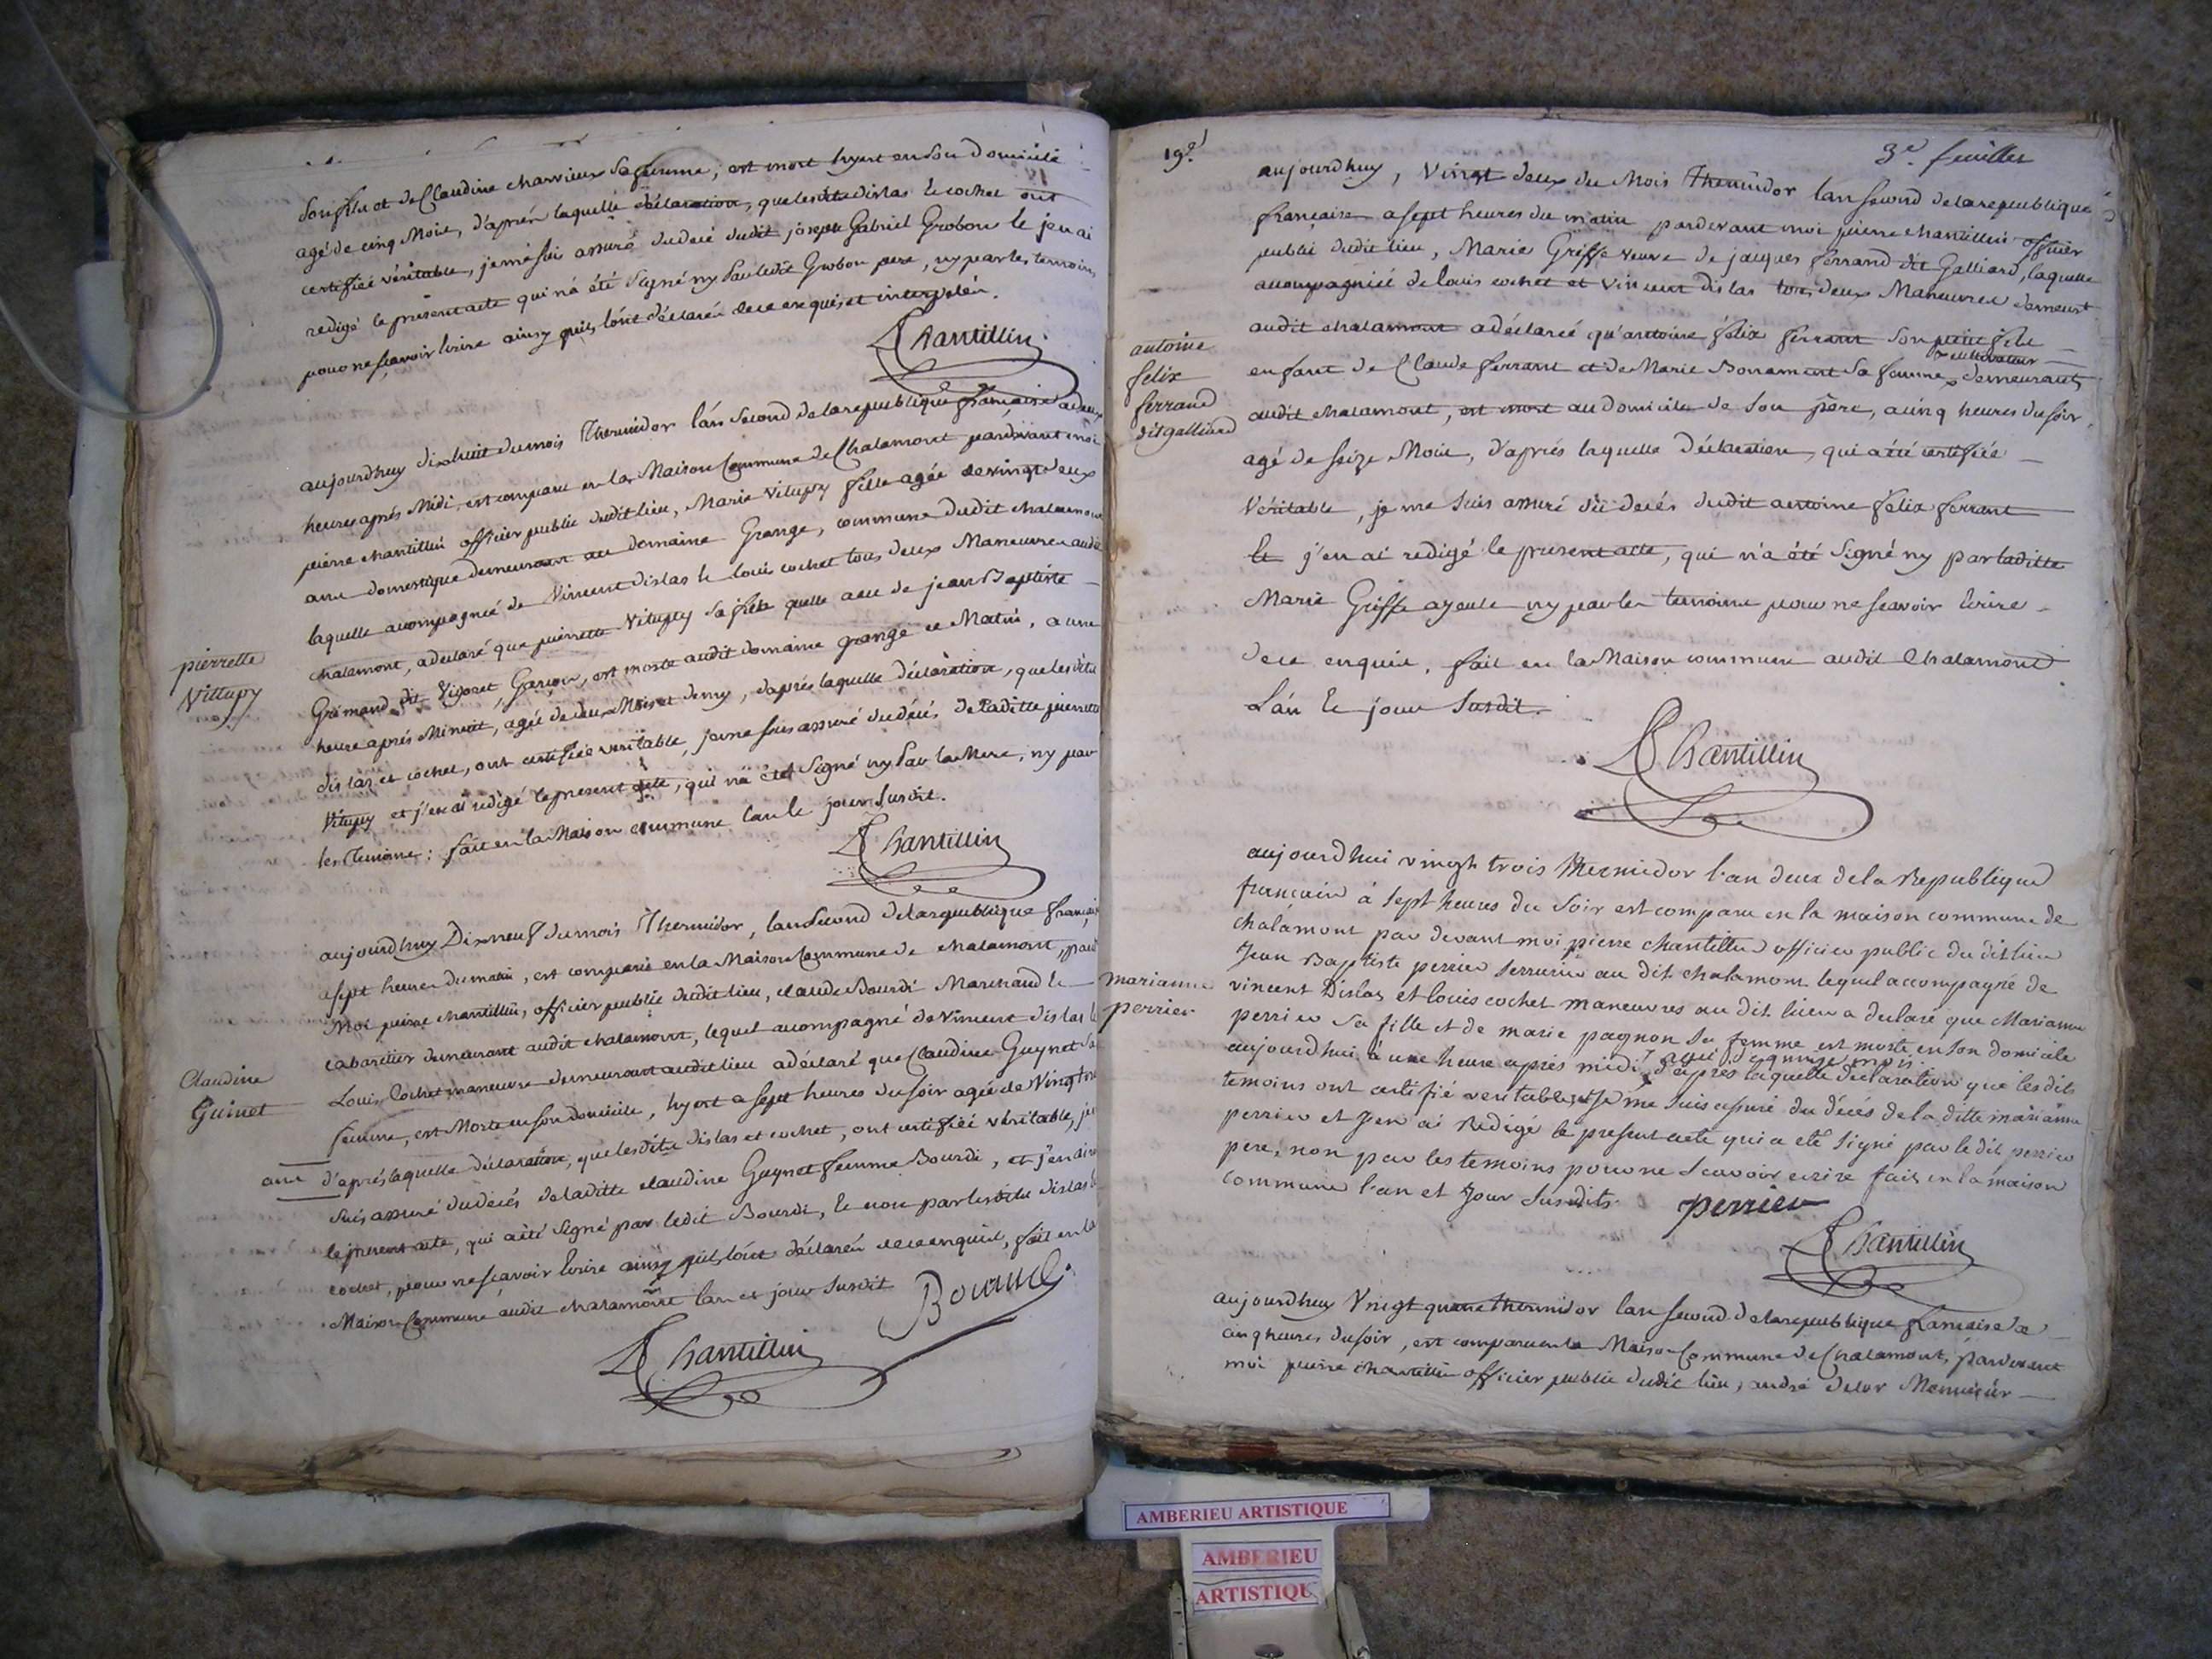 son fils et de Claudine charvieux sa femme, est mort hyert en son domicile
agé de cinq Mois, d'aprés laquelle déclaration, que lesdits dislas & cochet ont
certifiée véritable, je me suis assuré du decé dudit joseph Gabriel Grobon & j'en ai
redigé le présent acte qui n'a été signé ny par ledit Grobon pere, ny par les temoins
pour ne sçavoir écrire ainsy qu'ils l'ont déclarés de ce enquis, et interpelés.
Chantillin
aujourdhuy dixhuit du mois Thermidor l'an second de la republique française a deux
heures aprés Midi, est comparu en la Maison Commune de Chalamont pardevant moi
pierre chantillin officier public dudit lieu, Marie vitupy fille agée de vingt deux
ans domestique demeurant au domaine Grange, commune dudit chalamont
laquelle acompagnée de Vincent dislas & louis cochet tous deux Maneuvres audit
chalamont, a déclaré que pierrette vitupy sa fille quelle a eu de jean Baptiste
pierrette
Vittupy
Grimand dit Vigoret, Garçon, est morte audit domaine grange ce Matin, a une
heure aprés Minuit, agée de deux Mois et demy, d'aprés laquelle déclaration, que lesdits
dislas et cochet, ont certifiée veritable, je me suis assuré du décés de laditte pierrette
vitupy et j'en ai redigé le present acte, qui n'a été signé ny par la Mere, ny par
les Temoins : fait en la Maison commune l'an & jour susdit.
Chantillin
aujourdhuy Dixneuf du mois Thermidor, l'an second de la republique français
a sept heures du matin, est comparu en la Maison Commune de chalamont, pard
Moi pierre chantillin, officier public dudit lieu, claude Bourdi Marchand &
cabaretier demeurant audit chalamont, lequel acompagné de vincent dislas &
Claudine
Guinet
Louis Cochet maneuvre demeurant audit lieu a déclaré que Claudine Guynet sa
femme, est Morte en son domicile, hyert a sept heures du soir agée de Vingt trois
ans d'aprés laquelle déclaration, que lesdits dislas et cochet, ont certifiée véritable, je
suis assuré du decés de laditte claudine Guynet femme Bourdi, et j'en ai r
le present acte, qui a été signé par ledit Bourdi, & non par lesdits dislas &
cochet, pour ne sçavoir écrire ainsy qu'ils l'ont déclarés de ce enquis, fait en la
Maison Commune audit chalamont l'an et jour susdit
Bourdi
Chantillin
19e
3e. feuillet
aujourdhuy, Vingt deux du Mois Thermidor l'an second de la republique
française a sept heures du matin pardevant moi pierre chantillin officier
public dudit lieu, Marie Griffe veuve de jacques ferrand dit Galliard, laquelle
acompagniée de louis cochet et vincent dislas tous deux Maneuvres demeurt
audit chalamont a déclaré qu'antoine félix ferrant son petit fils
antoine
felix
ferrand
dit galliard
enfant de Claude ferrant et de Marie Bonamant sa femme cultivateur demeurants
audit chalamont, est mort au domicile de son père, a cinq heures du soir,
agé de seize Mois, d'aprés laquelle déclaration, qui a été certifiée
Véritable, je me suis assuré du decés dudit antoine félix ferrant
& j'en ai redigé le present acte, qui n'a été signé ny par laditte
Marie Griffe ayeule ny par les temoins pour ne sçavoir écrire
de ce enquis, fait en la Maison commune audit Chalamont
L'an & jour susdit.
Chantillin
aujourdhui vingt trois thermidor l'an deux de la Republique
francaise à sept heures du soir est comparu en la maison commune de
chalamont par devant moi pierre chantillin officier public du dit lieu
Jean Baptiste perrier serrurier au dit chalamont lequel accompagné de
marianne
perrier
vincent Dislas et louis cochet maneuvres au dit lieu a declaré que Marianne
perrier sa fille et de marie pagnon sa femme est morte en son domicile
aujourdhui à une heure après midi agée de quinze mois d'après laquelle declaration que les dits
temoins ont certifié veritable, Je me suis assuré du décés de la ditte marianne
perrier et J'en ai Redigé le present acte qui a été signé par le dit perrier
pere, non par les temoins pour ne scavoir ecrire fait en la maison
commune l'an et Jour susdits
perrier
Chantillin
aujourdhuy Vingt quatre thermidor l'an second de la republique française a
cinq heures du soir, est comparu en la Maison Commune de Chalamont, pardevant
moi pierre chantillin officier public dudit lieu, andré delor Menuisier
AMBERIEU ARTISTIQUE
AMBERIEU
ARTISTIQU